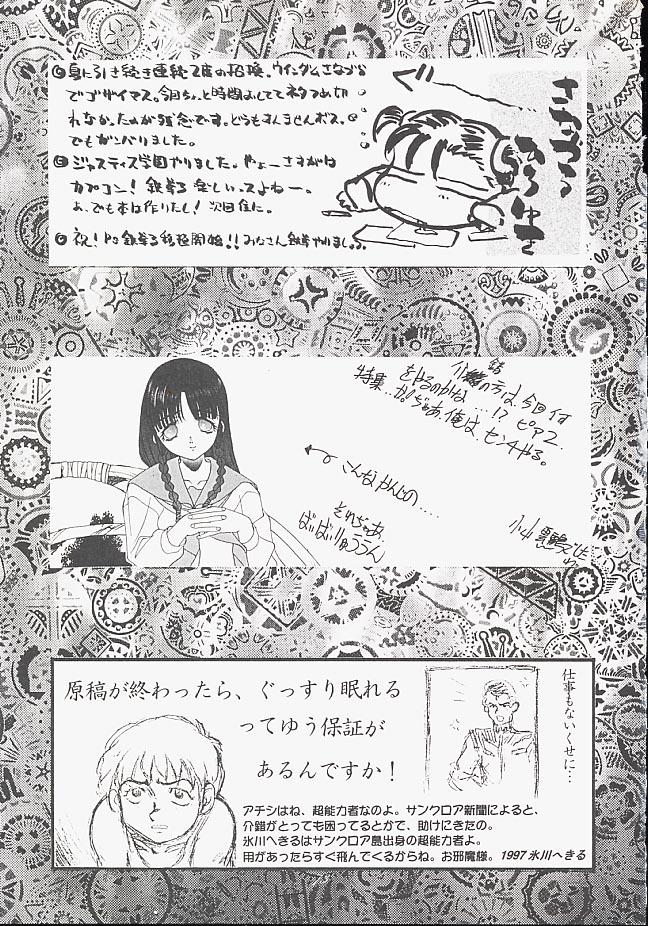 夏に引き続き連続2度の招喚、ウィンダムさなづら
でゴザイマス。今回ちょと時間おしてて
れなかったのが残念です。どうもすんませんボス。
でもガンバりました。
ジャスティス学園やりました。やぁーさすがは
カプコン！鉄拳3楽しいっスよねー。
あ、でも本は作りたし！次回位に。
祝！PS鉄拳3移植開始！！みなさん鉄拳やりましょう
の方は、今回付
をやるのかな…!?ピアス
特集‥か!じゃあ、俺は、センチやる。
こんなかんじの…
それじゃあ、
ばいばいりゅううん
仕事もないくせに…
原稿が終わったら、ぐっすり眠れる
ってゆう保証が
あるんですか！
アチシはね、超能力者なのよ。サンクロア新聞によると、
介錯がとっても困ってるとかで、助けにきたの。
氷川へきるはサンクロア島出身の超能力者よ。
用があったらすぐ飛んでくるからね。お邪魔様。1997 氷川へきる